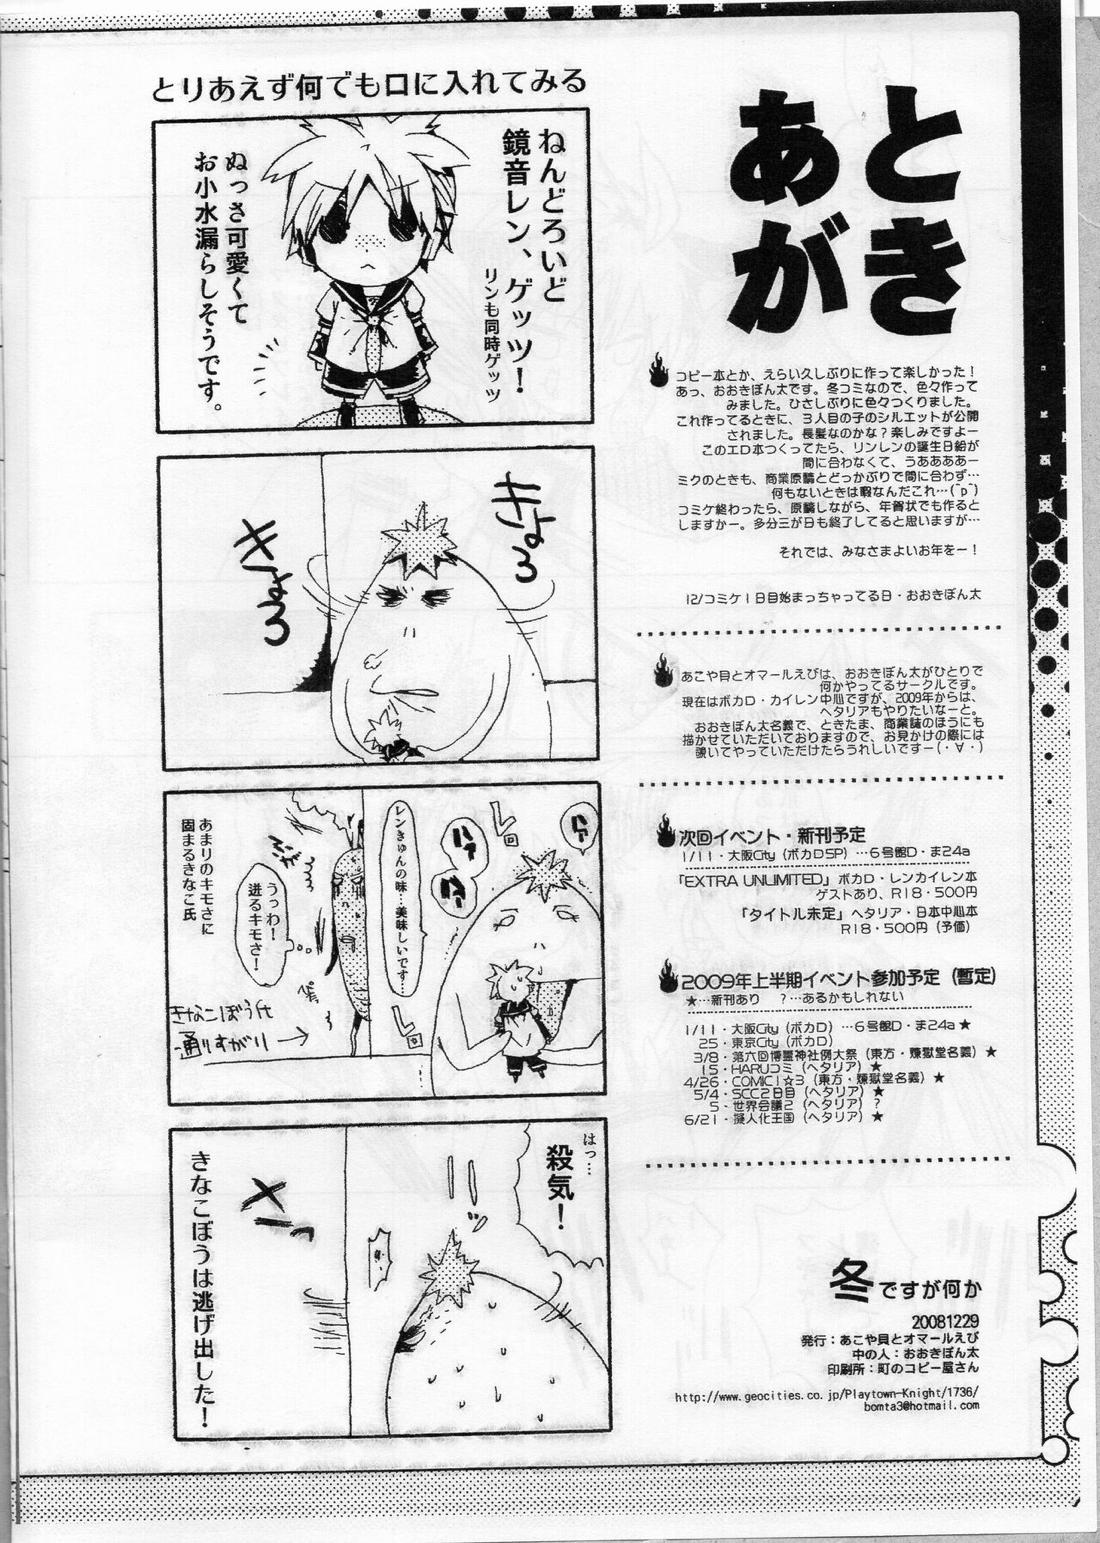 とりあえず何でも口に入れてみる
ねんどろいど
鏡音レン、ゲッツ!
リンも同時ゲッツ
ぬっさ可愛くて
お小水漏らしそうです。
きょろ
きょろ
ハァ
ハァ
ハァ
レ回
レンきゅんの味…美味しいです…
レロ
うっわ!
迸るキモさ!
あまりのキモさに
固まるきなこ氏
きなこぼう氏
通りすがり→
はっ…
殺気!
きなこぼうは逃げ出した!
あとがき
コピー本とか、えらい久しぶりに作って楽しかった!
あっ、おおきぼん太です。冬コミなので、色々作って
みました。ひさしぶりに色々つくりました。
これ作ってるときに、3人目の子のシルエットが公開
されました。長髪なのかな?楽しみですよー
このエロ本つくってたら、リンレンの誕生日絵が
間に合わなくて、うああああー
ミクのときも、商業原稿とどっかぶりで間に合わず…
何もないときは暇なんだこれ…(^p^)
コミケ終わったら、原稿しながら、年賀状でも作ると
しますかー。多分三が日も終了してると思いますが…
それでは、みなさまよいお年をー!
12/コミケ1日目始まっちゃってる日・おおきぼん太
あこや貝とオマールえびは、おおきぼん太がひとりで
何かやってるサークルです。
現在はボカロ・カイレン中心ですが、2009年からは、
ヘタリアもやりたいなーと。
おおきぼん太名義で、ときたま、商業誌のほうにも
描かせていただいておりますので、お見かけの際には
覗いてやっていただけたらうれしいですー(・∀・)
次回イベント・新刊予定
1/11・大阪City(ボカロSP)…6号館D・ま24a
「EXTRA UNLIMITED」ボカロ・レンカイレン本
ゲストあり、R18・500円
「タイトル未定」ヘタリア・日本中心本
R18・500円(予価)
2009年上半期イベント参加予定(暫定)
★…新刊あり ?…あるかもしれない
1/11・大阪City(ボカロ)…6号館D・ま24a★
25・東京City(ボカロ)
3/8・第六回博麗神社例大祭(東方・煉獄堂名義)★
15・HARUコミ(ヘタリア)★
4/26・COMIC1☆3(東方・煉獄堂名義)★
5/4・SCC2日目(ヘタリア)★
5・世界会議2(ヘタリア)?
6/21・擬人化王国(ヘタリア)★
冬ですが何か
20081229
発行:あこや貝とオマールえび
中の人:おおきぼん太
印刷所:町のコピー屋さん
http://www.geocities.co.jp/Playtown-Knight/1736/
bomta3@hotmail.com